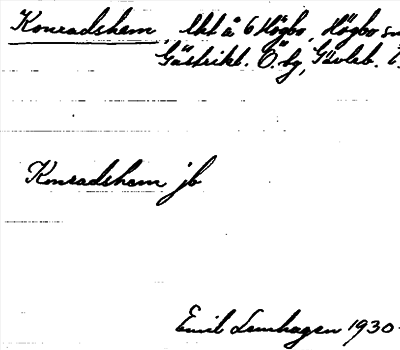 Konradshem, lht å 6 Högbo, Högbo sn
Gästrikl. Ö. dg, Gävleb. l.
Konradshem jb
Emil Lemhagen 1930